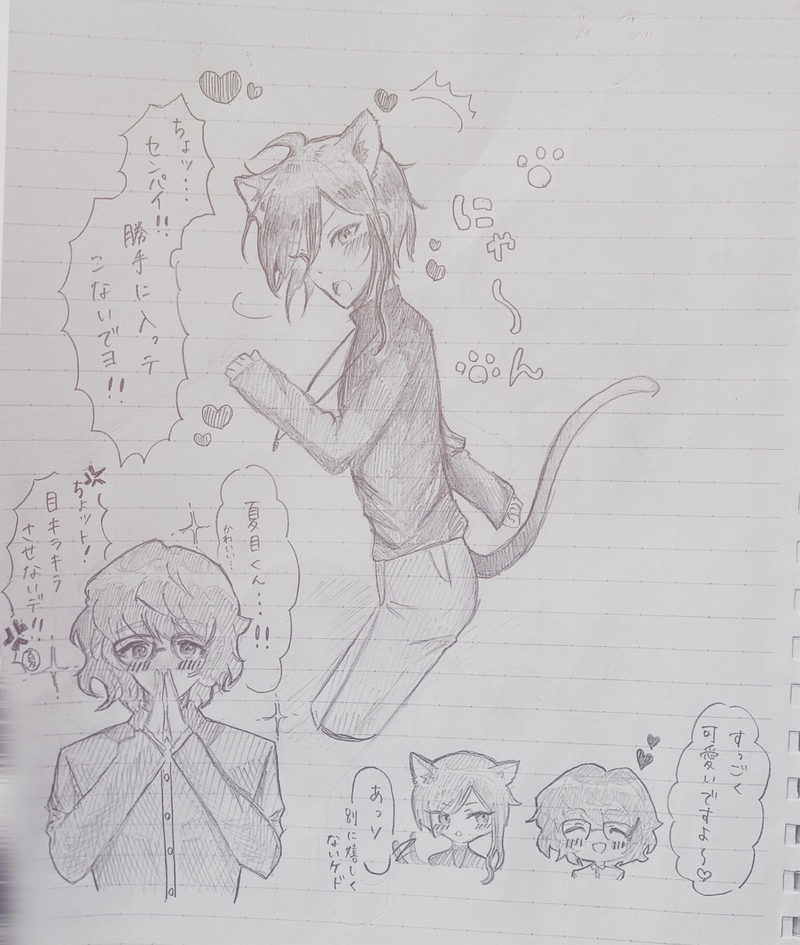 ちょッ…
センパイ!!
勝手に入ッテ
こないでヨ!!
にゃ〜ん
夏目くん…‥!!
かわいい…
ちょット!
目キラキラ
させないデ!!
夏
すっごく
可愛いですよ〜♡
あっソ
別に嬉しく
ないケド